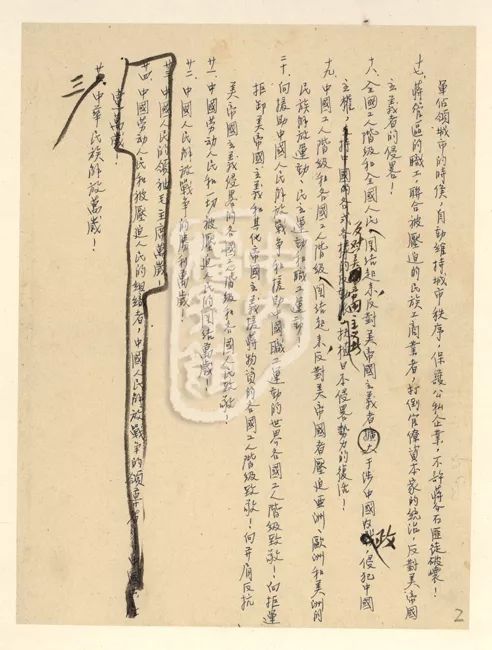 軍佔領城市的時候，自動維持城市秩序，保護公私企業，不許蔣介石匪徒破壞！
十七、蔣管區的職工，聯合被壓迫的民族工商業者，打倒官僚資本家的統治，反對美帝國
主義者的侵略！
十八、全國工人階級和全國人民團結起來，反對美帝國主義者擴大干涉中國內政，侵犯中國
主權，反對美帝國主義扶植日本侵略勢力的復活！
十九、中國工人階級和各國工人階級團結起來，反對美帝國者壓迫亞洲、歐洲和美洲的
民族解放運動、民主運動和職工運動！
二十、向援助中國人民解放戰爭和援助中國職工運動的世界各國工人階級致敬！向拒運
拒卸美帝國主義和其他帝國主義援蔣物資的各國工人階級致敬！向反抗
美帝國主義侵略的各國工人階級和各國人民致敬！
廿一、中國勞動人民和一切被壓迫人民的團結萬歲！
廿二、中國人民解放戰爭的勝利萬歲！
廿三、中國人民的領袖毛主席萬歲！
廿四、中國勞動人民和被壓迫人民的組織者，中國人民解放戰爭的領導者
萬歲！
三、中華民族解放萬歲！
2